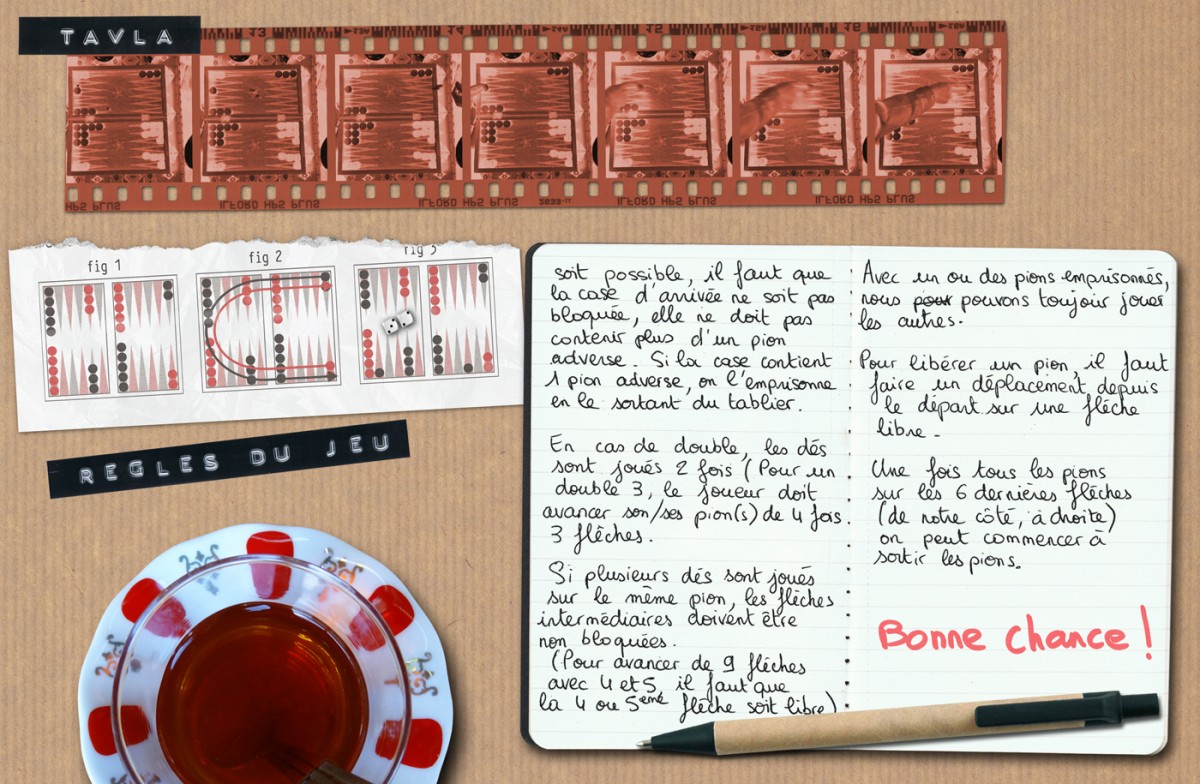 TAVLA
13
14
15
16
ILFORD HP5 PLUS
ILFORD HP5 PLUS
ILFORD HP5 PLUS
ILFORD HP5 PLUS
fig 1
fig 2
fig 3
REGLES DU JEU
soit possible, il faut que
la case d'arrivée ne soit pas
bloquée, elle ne doit pas
contenir plus d'un pion
adverse. Si la case contient
1 pion adverse, on l'emprisonne
en le sortant du tablier.
En cas de double, les dés
sont joués 2 fois (Pour un
double 3, le joueur doit
avancer son/ses pion(s) de 4 fois
3 flêches.
Si plusieurs dés sont joués
sur le même pion, les flêches
intermédiaires doivent être
non bloquées.
(Pour avancer de 9 flêches
avec 4 et 5 il faut que
la 4 ou 5eme flêche soit libre)
Avec un ou des pions emprisonnés,
nous pour pouvons toujoir jouer
les autres.
Pour libérer un pion, il faut
faire un déplacement depuis
le départ sur une flêche
libre.
Une fois tous les pions
sur les 6 dernières flêches
(de notre côté, à droite)
on peut commencer à
sortir les pions.
Bonne chance !